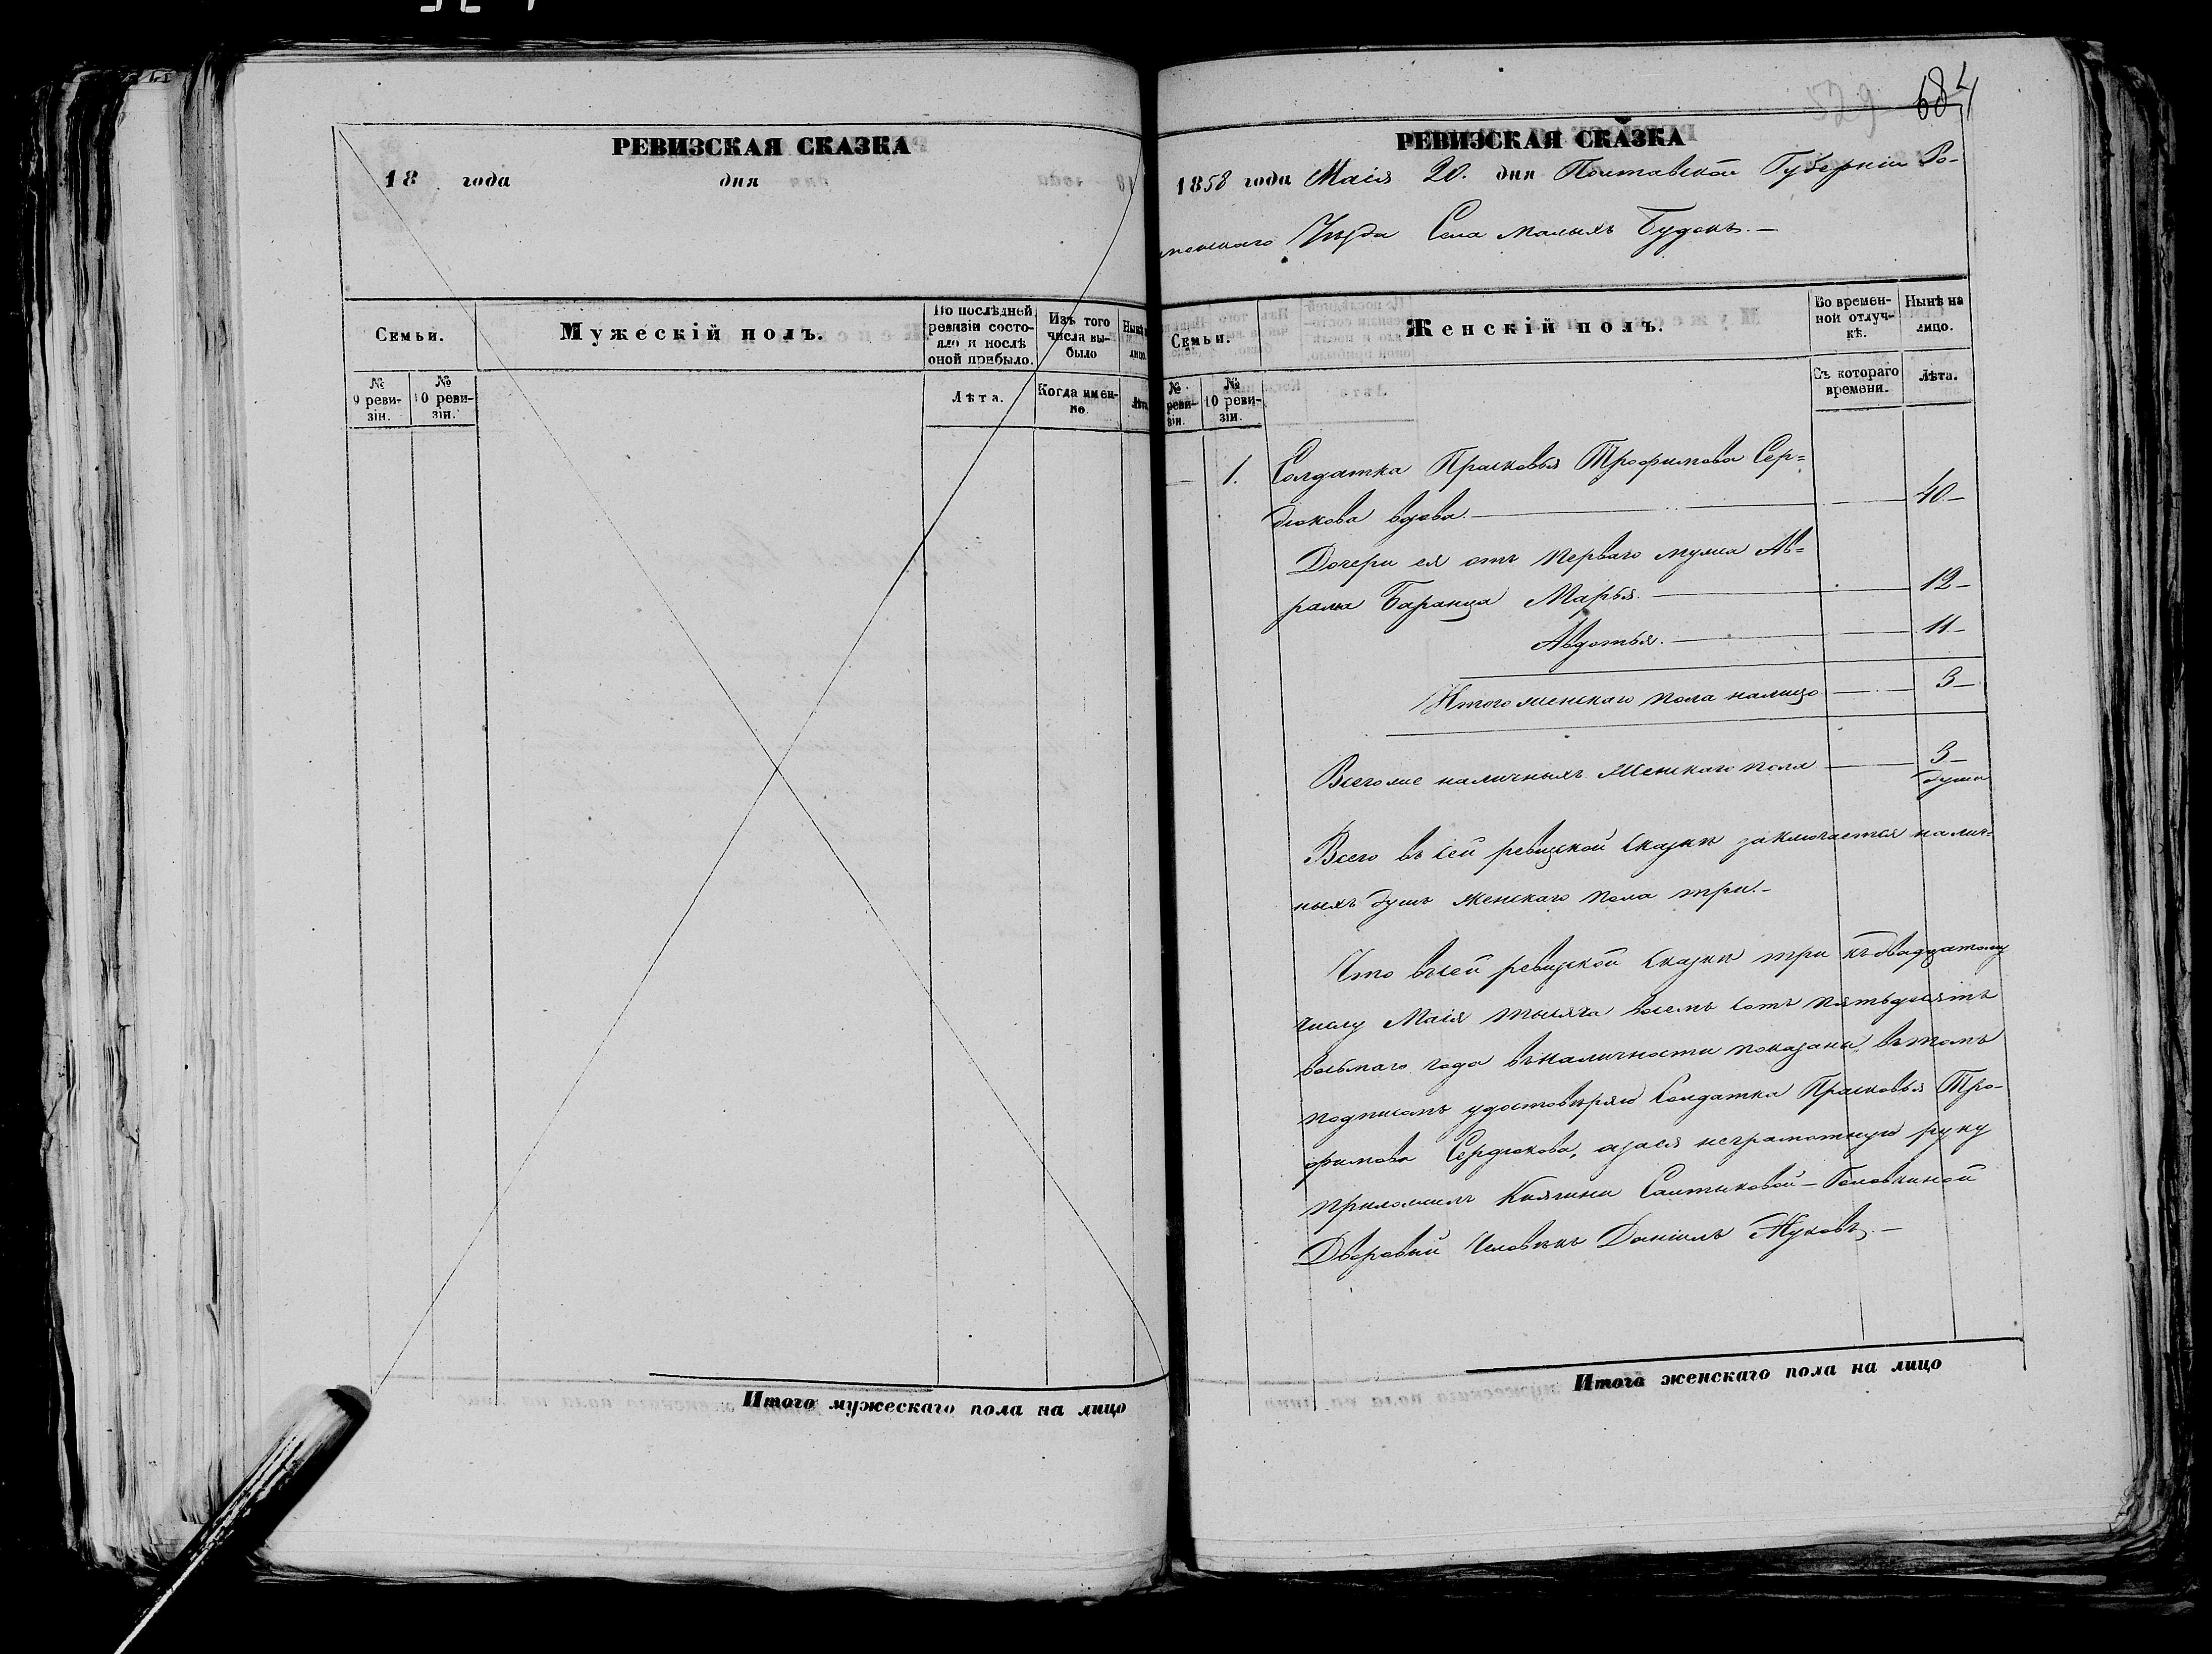 РЕВИЗСКАЯ СКАЗКА
18 года дня
Семьи.
Мужескій полъ.
По послѣдней
ревизіи состо-
яло и послѣ
оной прибыло.
Изъ того
числа вы-
было
№
9 реви-
зіи.
№
10 реви-
зіи.
Лѣта.
Когда имен-
но.
Итого мужескаго пола на лицо
529 684
РЕВИЗСКАЯ СКАЗКА
1858 года Маія 20. дня Полтавской Губерніи Ро-
менскаго Уѣзда Села малыхъ Будокъ.—
Семьи.
Женскій полъ.
Во времен-
ной отлуч-
кѣ.
Нынѣ на
лицо.
№
реви-
зіи.
№
10 реви-
зіи.
Съ котораго
времени.
Лѣта.
1. Солдатка Прасковья Трофимова Сер=
дюкова вдова.— 40—
Дочери ея отъ перваго мужа Ав=
рама Баранца Марья.— 12—
Авдотья.— 11—
Итого женскаго пола налицо — 3—
Всего же наличныхъ женскаго пола — 3—
души
Всего въ сей ревизской сказкѣ заключается налич-
ныхъ душъ женскаго пола три.—
Что въ сей ревизской сказкѣ три къ двадцатому
числу Маія тысяча восемь сотъ пятьдесятъ
восьмаго года въ наличности показаны, въ томъ
подписомъ удостовѣряю Солдатка Прасковья Тро-
фимова Сердюкова, а за ея неграмотную руку
приложилъ Княгини Салтыковой-Головкиной
Дворовый Человѣкъ Даніилъ Жуковъ.—
Итого женскаго пола на лицо